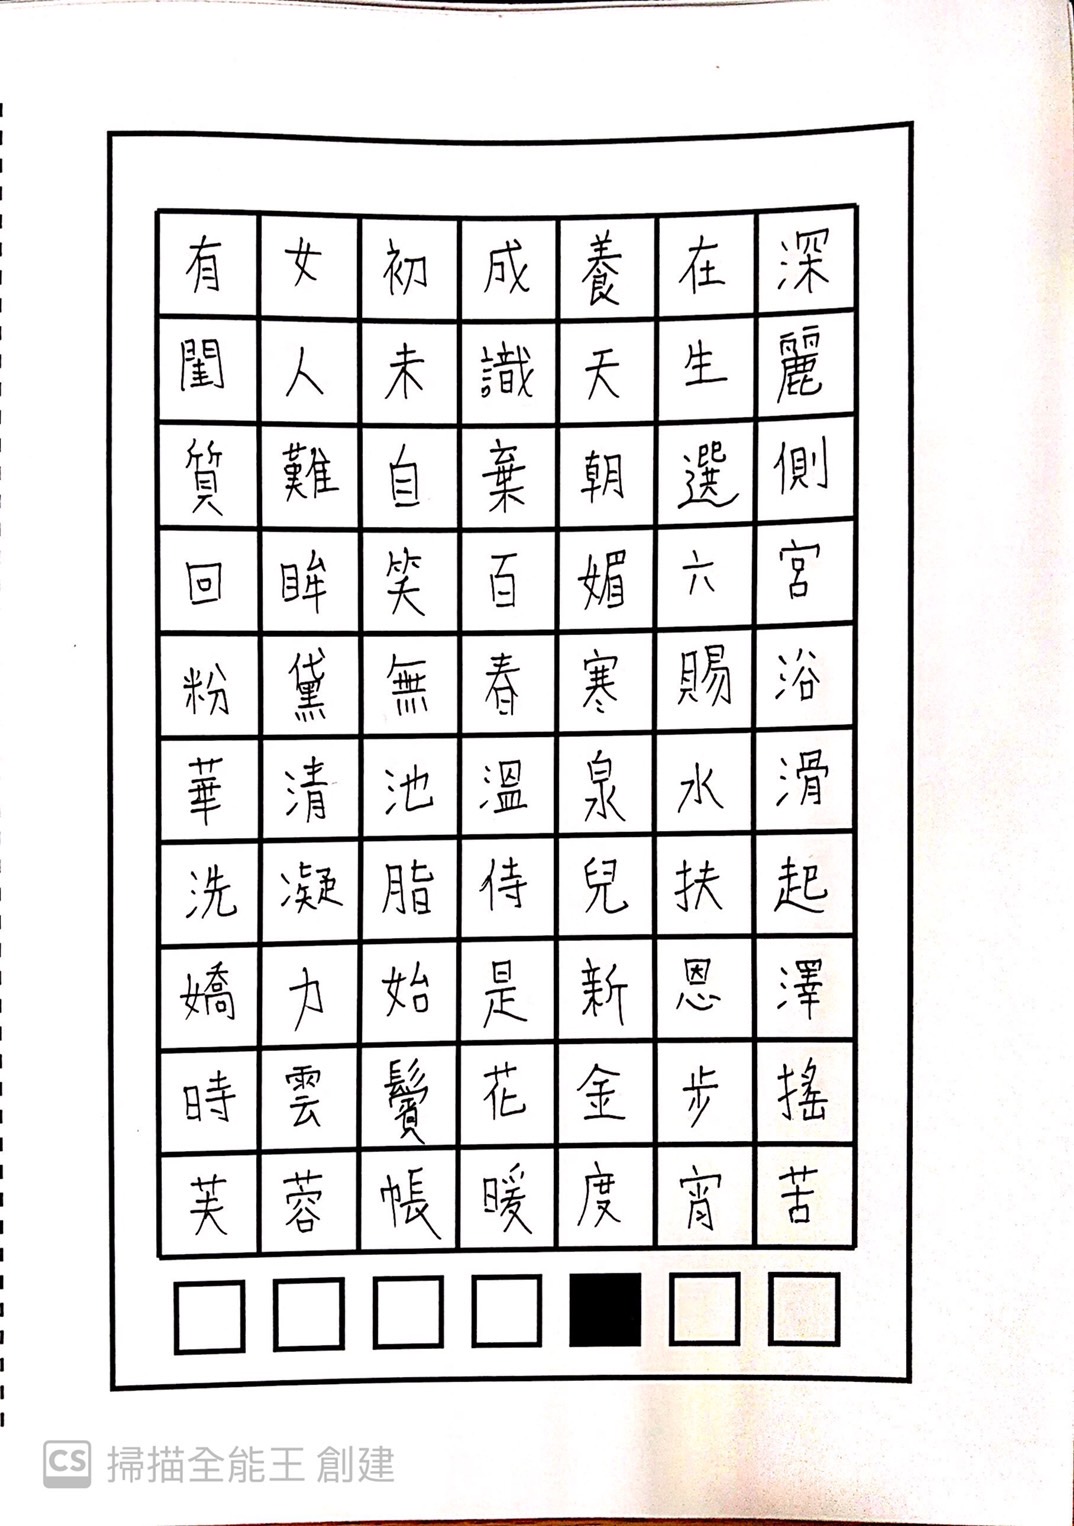 有女初成養在深
閨人未識天生麗
質難自棄朝選側
回眸笑百媚六宮
粉黛無春寒賜浴
華清池溫泉水滑
洗凝脂侍兒扶起
嬌力始是新恩澤
時雲鬢花金步搖
芙蓉帳暖度宵苦
CS 掃描全能王 創建